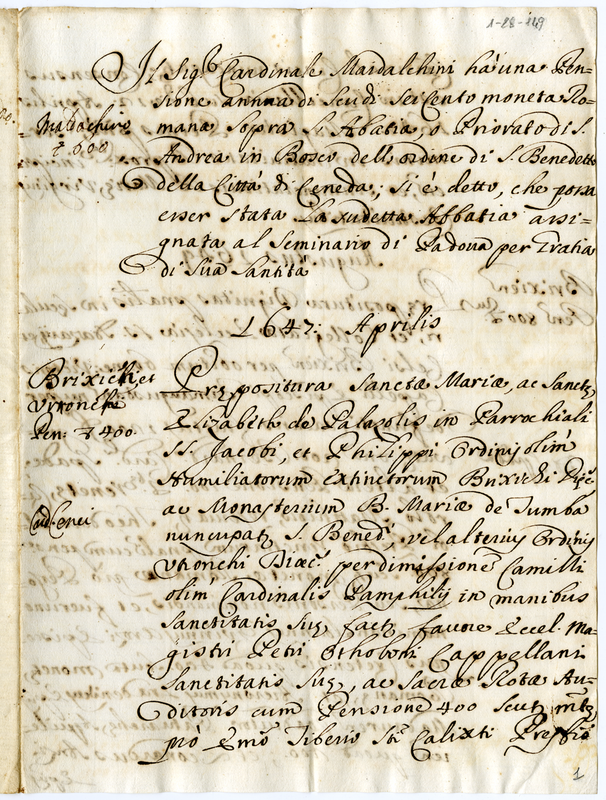 1-88-149
Il Sig.r Cardinale Maidalchini hà una Pen-
sione annua di Scudi Seicento moneta Ro-
mana sopra S. Abatia, o Priorato di S.
Andrea in Bosco dell'ordine di S. Benedetto
della Città di Ceneda; si è detto, che possa
esser stata la sudetta Abbatia assi-
gnata al Seminario di Padova per Gratia
di Sua Santità
600
1647: Aprilis
Brixieñ et
Pen: 400.
Præpositura Sanctæ Mariæ, ac Sanctę
Elizabeth de Palazolis in Parrochiali
SS. Jacobi, et Philippi Ordinis olim
Humiliatorum extinctorum
ac Monasterium B. Mariæ de Tumba
nuncupatę S. Bened.i, vel alterius Ordinis
per dimissione Camilli
olim Cardinalis Pamphilij in manibus
Sanctitatis Suę factę favore Eccel. Ma-
gistri Petri Othoboni Cappellani
Sanctitatis Suę, ac Sacræ Rotæ Au-
ditoris cum Pensione 400 scut.
Emo Tiberio Sti Calixti
1